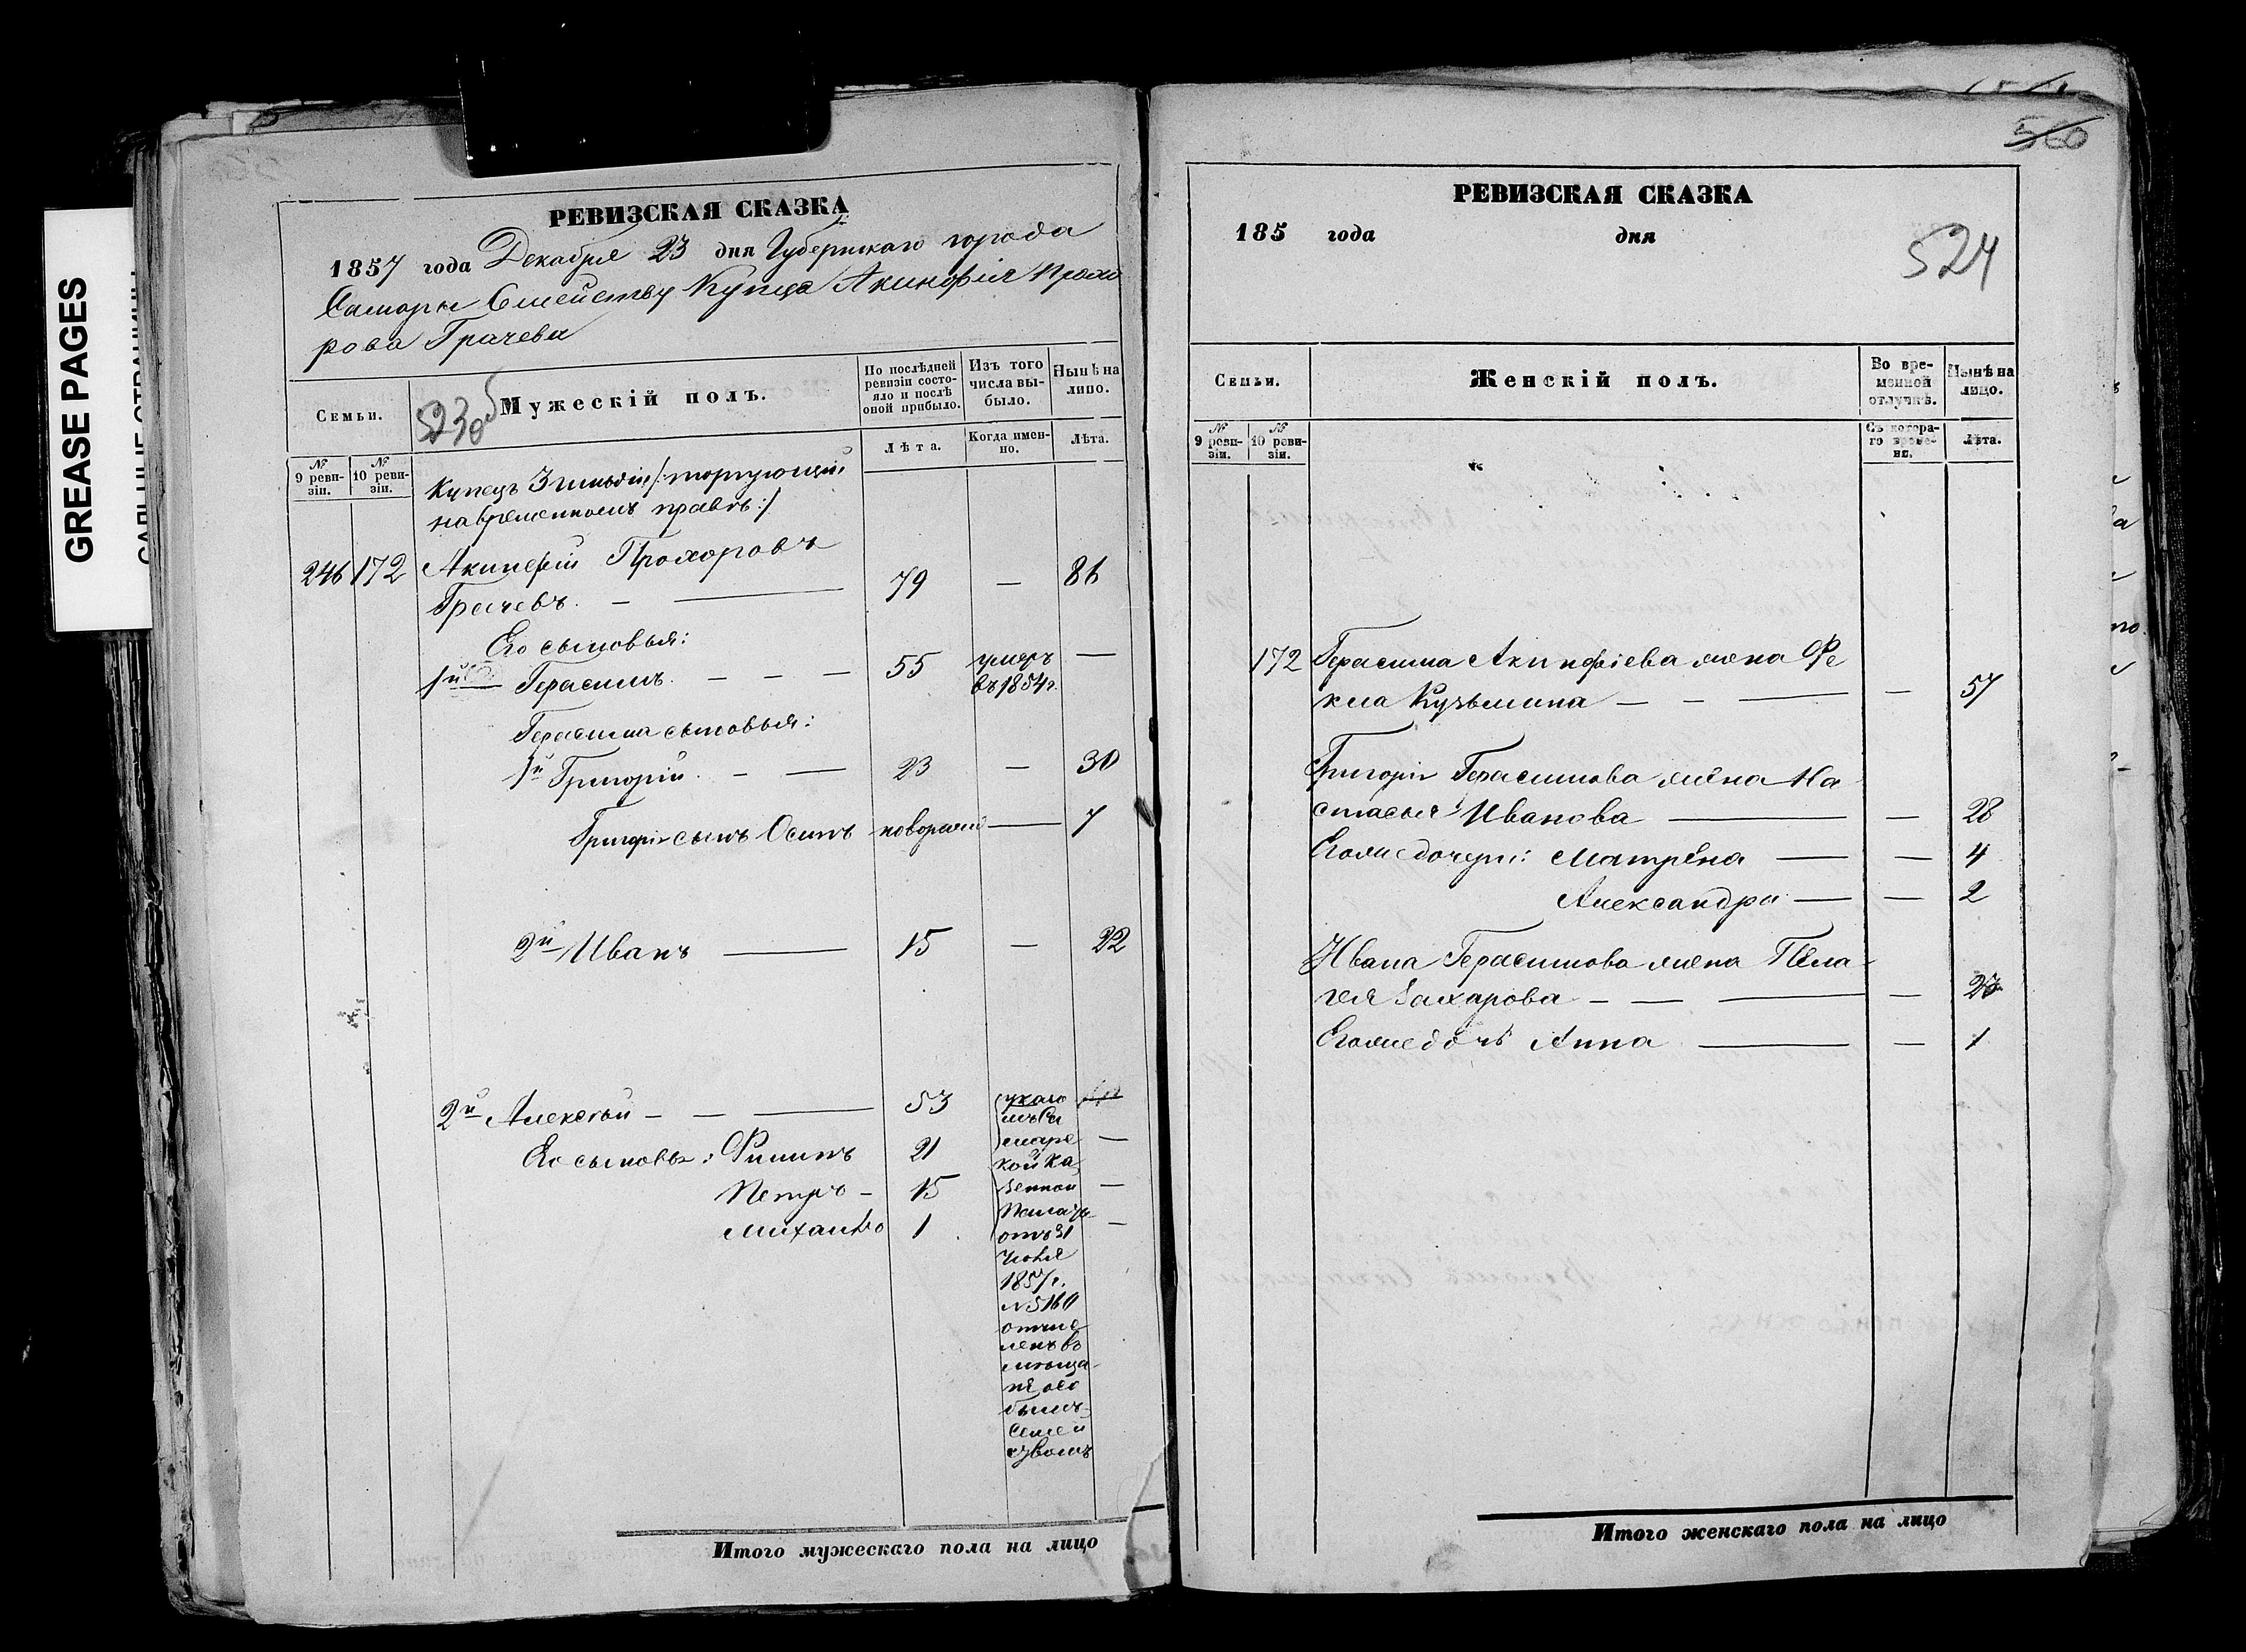 GREASE PAGES
РЕВИЗСКАЯ СКАЗКА
1857 года Декабря 23 дня Губернскаго города
Самары Семейству Купца Акинфія Прохо
рова Грачева
Семьи.
523об
Мужескій полъ.
По послѣдней ревизіи состояло и послѣ оной прибыло.
Изъ того числа выбыло.
Нынѣ на лицо.
№ 9 ревизіи.
№ 10 ревизіи.
Лѣта.
Когда именно.
Лѣта.
Купецъ 3 гильдіи /:торгующій
на временномъ правѣ:/
246 172 Акинфій Прохоровъ
Грачевъ. — 79 — 86
Его сыновья:
1й Герасимъ. — — — 55 умеръ въ 1854г. —
Герасима сыновья:
1й Григорій — — 23 — 30
Григорія сынъ Осипъ новорожд — 7
2й Иванъ — 15 — 22
2й Алексѣй — — — 53
Его сыновья: Филипъ 21 —
Петръ — 15 —
Михайло 1 —
указо
мъ Са
марс
кой Ка
зенной
Палаты
отъ 31
Іюля
1857г.
№ 5160
отчис
ленъ въ
мѣща-
не осо
бымъ
семей
ствомъ
Итого мужескаго пола на лицо
560
РЕВИЗСКАЯ СКАЗКА
185 года дня
524
Семьи.
Женскій полъ.
Во временной отлучкѣ.
Нынѣ на лицо.
№ 9 ревизіи.
№ 10 ревизіи.
Съ котораго времени.
Лѣта.
172 Герасима Акинфіева жена Фе
кла Кузьмина — — — — 57
Григорія Герасимова жена На
стасья Иванова — — 28
Его же дочери: Матрёна — — 4
Александра — — 2
Ивана Герасимова жена Пела-
гея Захарова — — — —
Его же дочь Анна — — 1
Итого женскаго пола на лицо